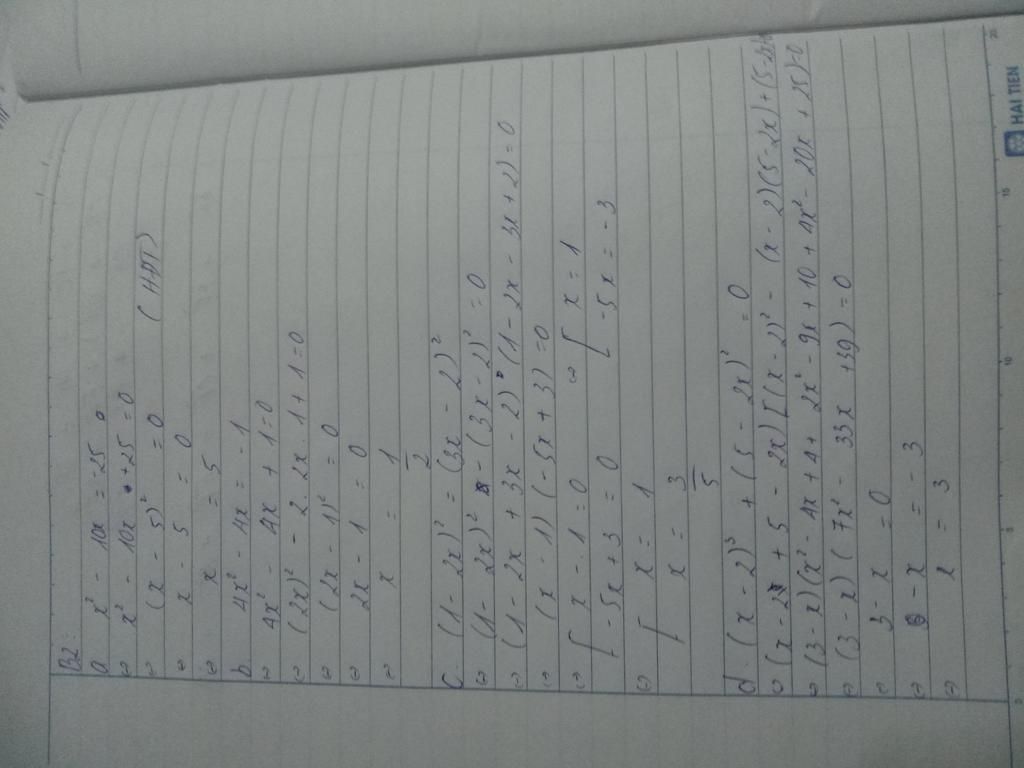 B2:
a x² - 10x = -25
⇔ x² - 10x + 25 = 0
⇔ (x - 5)² = 0 (HĐT)
⇔ x - 5 = 0
⇔ x = 5
b 4x² - 4x = -1
⇔ 4x² - 4x + 1 = 0
⇔ (2x)² - 2. 2x. 1 + 1 = 0
⇔ (2x - 1)² = 0
⇔ 2x - 1 = 0
⇔ x = 1/2
c. (1 - 2x)² = (3x - 2)²
⇔ (1 - 2x)² - (3x - 2)² = 0
⇔ (1 - 2x + 3x - 2) (1 - 2x - 3x + 2) = 0
⇔ (x - 1) (-5x + 3) = 0
⇔ [ x - 1 = 0 ⇔ [ x = 1
-5x + 3 = 0 -5x = -3
⇔ [ x = 1
x = 3/5
d. (x - 2)³ + (5 - 2x)³ = 0
⇔ (x - 2 + 5 - 2x) [(x - 2)² - (x - 2)(5 - 2x) + (5 - 2x)²
⇔ (3 - x)(x² - 4x + 4 + 2x² - 9x + 10 + 4x² - 20x + 25) = 0
⇔ (3 - x) (7x² - 33x + 39) = 0
⇔ 3 - x = 0
⇔ - x = - 3
⇔ x = 3
HẢI TIẾN
0 5 10 15 20